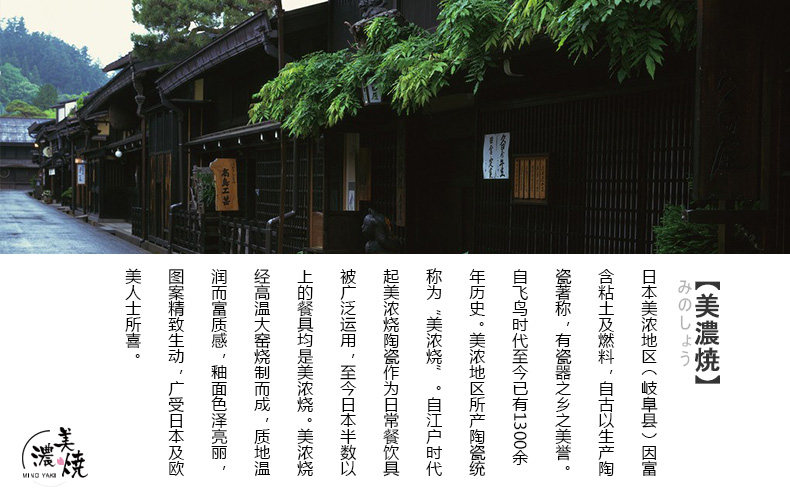 【美濃焼】
みのしょう
日本美浓地区（岐阜县）因富
含粘土及燃料，自古以生产陶
瓷著称，有瓷器之乡之美誉。
自飞鸟时代至今已有1300余
年历史。美浓地区所产陶瓷统
称为“美浓烧”。自江户时代
起美浓烧陶瓷作为日常餐饮具
被广泛运用，至今日本半数以
上的餐具均是美浓烧。美浓烧
经高温大窑烧制而成，质地温
润而富质感，釉面色泽亮丽，
图案精致生动，广受日本及欧
美人士所喜。
美濃焼
MINO YAKI